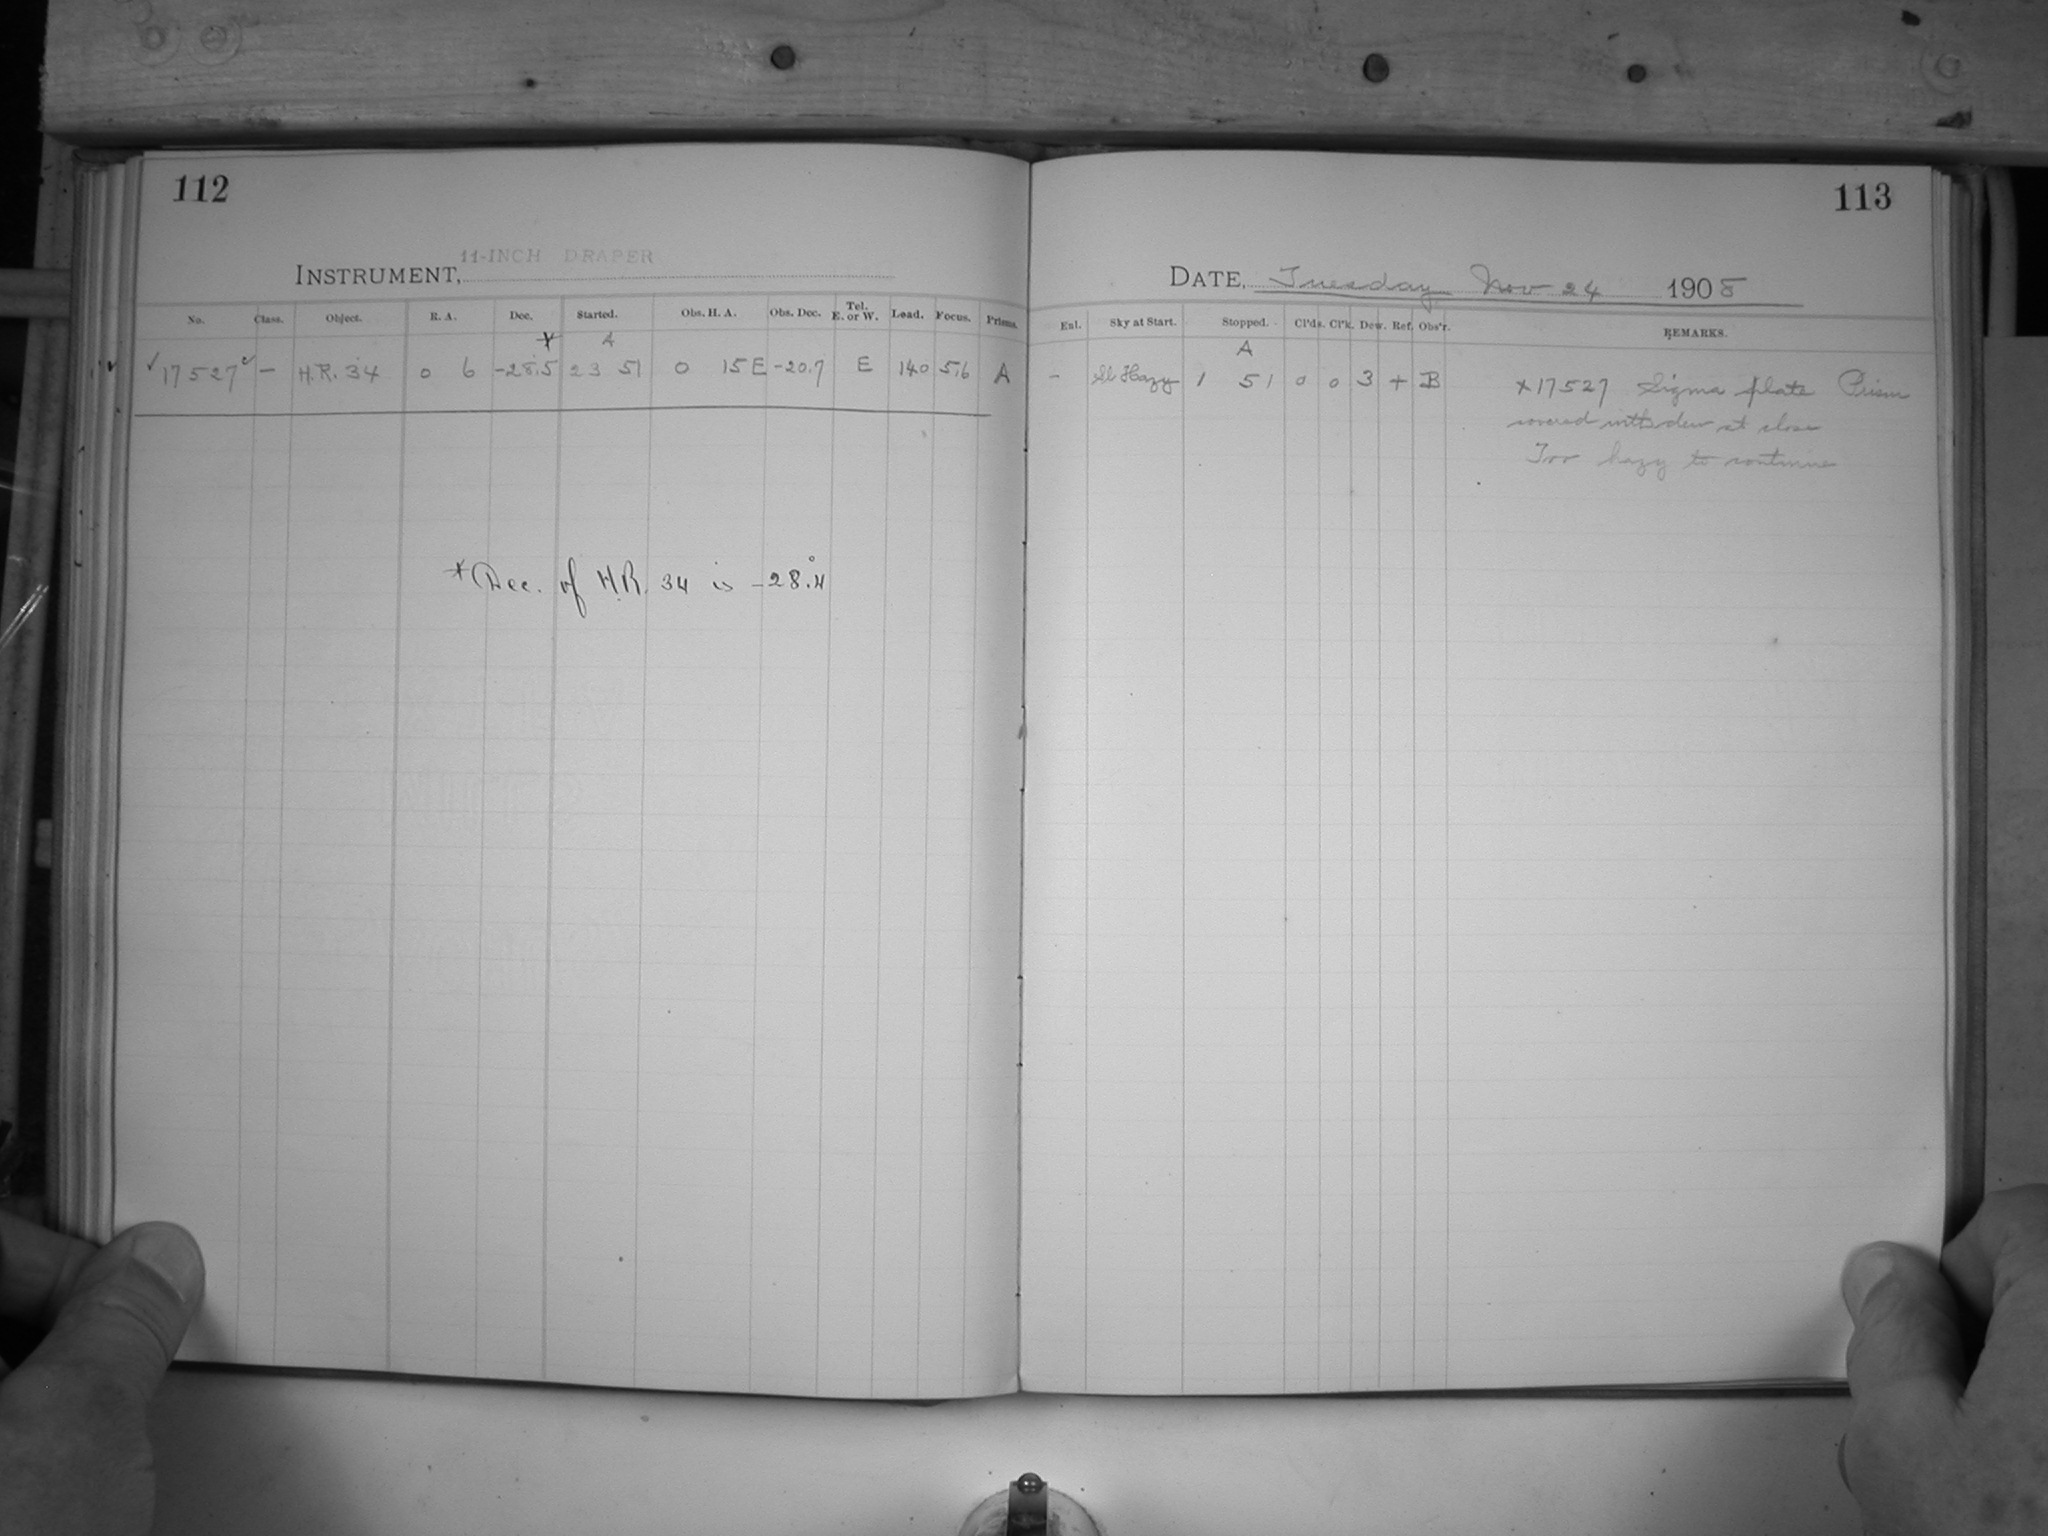 112
11-INCH DRAPER
INSTRUMENT,
No. Class. Object. R. A. Dec. Started. Obs. H. A. Obs. Dec. Tel. E. or W. Load. Focus. Prisms.
* A
✓ 17527 ✓ – H.R. 34 0 6 -28.5 23 51 0 15 E -20.7 E 140 5.6 A
* Dec. of H.R. 34 is -28.°4
113
DATE, Tuesday Nov 24 1908
Enl. Sky at Start. Stopped. Cl'ds. Cl'k. Dew. Ref. Obs'r. REMARKS.
A
– Sl Hazy 1 51 0 0 3 + B x 17527 Sigma plate Prism
covered with dew at close
Too hazy to continue